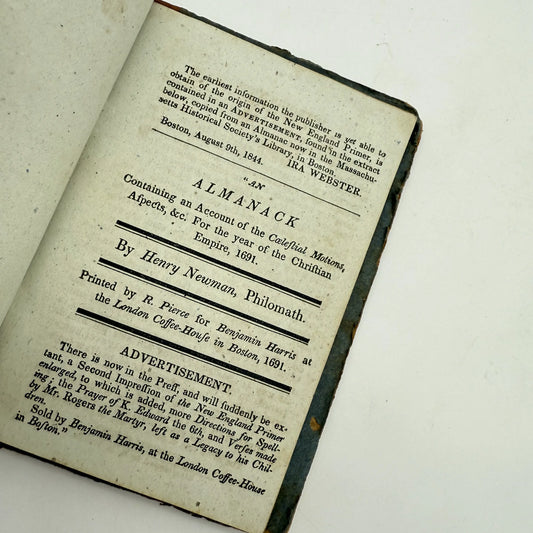 The earliest information the publisher is yet able to
obtain of the origin of the New England Primer, is
contained in an ADVERTISEMENT, found in the extract
below, copied from an Almanac now in the Massachu-
setts Historical Society's Library, in Boston.
IRA WEBSTER.
Boston, August 9th, 1844.
"AN
ALMANACK
Containing an Account of the Cæleſtial Motions,
Aſpects, &c. For the year of the Chriſtian
Empire, 1691.
By Henry Newman, Philomath.
Printed by R. Pierce for Benjamin Harris at
the London Coffee-Houſe in Boston, 1691.
ADVERTISEMENT.
There is now in the Preſſ, and will ſuddenly be ex-
tant, a Second Impreſſion of the New England Primer
enlarged, to which is added, more Directions for Spell-
ing; the Prayer of K. Edward the 6th, and Verſes made
by Mr. Rogers the Martyr, left as a Legacy to his Chil-
dren.
Sold by Benjamin Harris, at the London Coffee-Houſe
in Boſton."